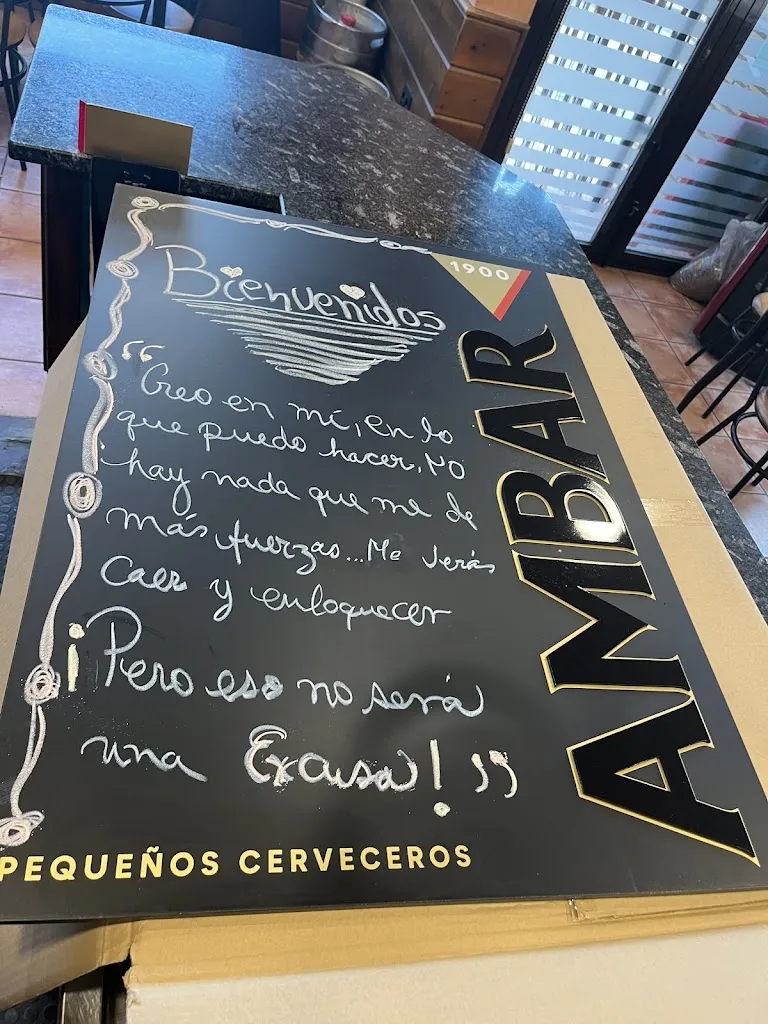 Bienvenidos
1900
AMBAR
“Creo en mí, en lo
que puedo hacer, no
hay nada que me de
más fuerzas... Me verás
caer y enloquecer
¡Pero eso no será
una Excusa!”
PEQUEÑOS CERVECEROS